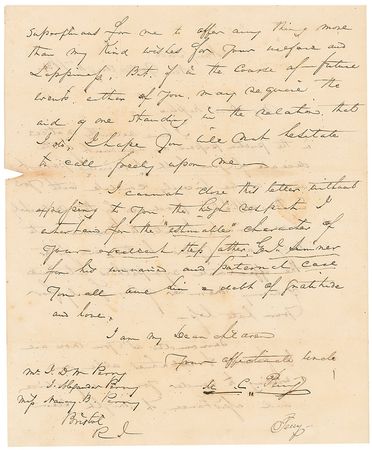 superfluous for me to offer any thing more
than my kind wishes for your welfare and
happiness. But, if in the course of future
events, either of you, may require the
aid of one standing in the relation, that
I do, I hope you will not hesitate
to call freely upon me.
I cannot close this letter without
expressing to you the high respect I
entertain for the "estimable" character of
your excellent step father, Genl. Sumner
for his unvaried and paternal care
You, all owe him a debt of gratitude
and love.
I am my Dear children
Your affectionate uncle
M. C. Perry
Mr. J. D M Perry
J. Alexander Perry
Miss Nancy B. Perry
Bristol
R I
Perry